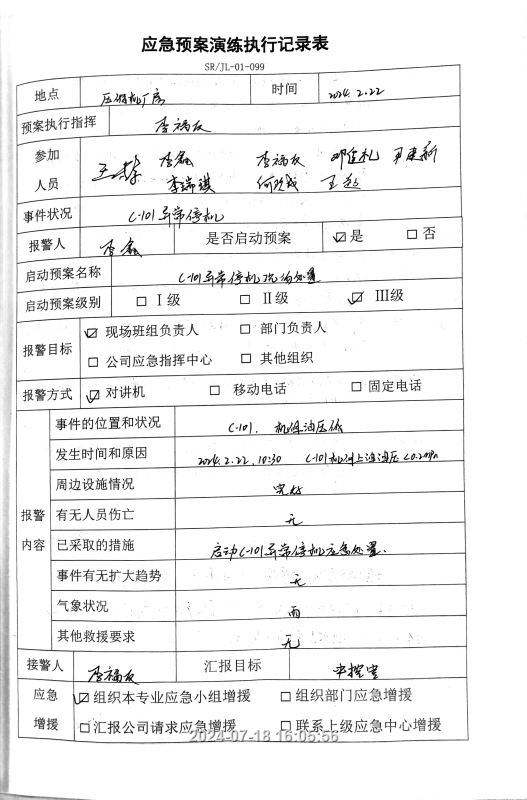 应急预案演练执行记录表
SR/JL-01-099
地点 压缩机厂房 时间 2024.2.22
预案执行指挥 李福友
参加 李磊 李福友 邓建礼
人员 李瑞琪 王超
事件状况 C-101异常停机
报警人 李磊 是否启动预案 ☑是 □否
启动预案名称 C-101异常停机现场处置
启动预案级别 □ Ⅰ级 □ Ⅱ级 ☑ Ⅲ级
报警目标 ☑ 现场班组负责人 □ 部门负责人
□ 公司应急指挥中心 □ 其他组织
报警方式 ☑ 对讲机 □ 移动电话 □ 固定电话
报警内容
事件的位置和状况 C-101. 机体油压低
发生时间和原因 2024.2.22, 10:30 C-101机油压<0.2MPa
周边设施情况 完好
有无人员伤亡 无
已采取的措施 启动C-101异常停机应急处置.
事件有无扩大趋势 无
气象状况 雨
其他救援要求 无
接警人 李福友 汇报目标 中控室
应急 ☑组织本专业应急小组增援 □组织部门应急增援
增援 □汇报公司请求应急增援 □联系上级应急中心增援
2024-07-18 16:05:56